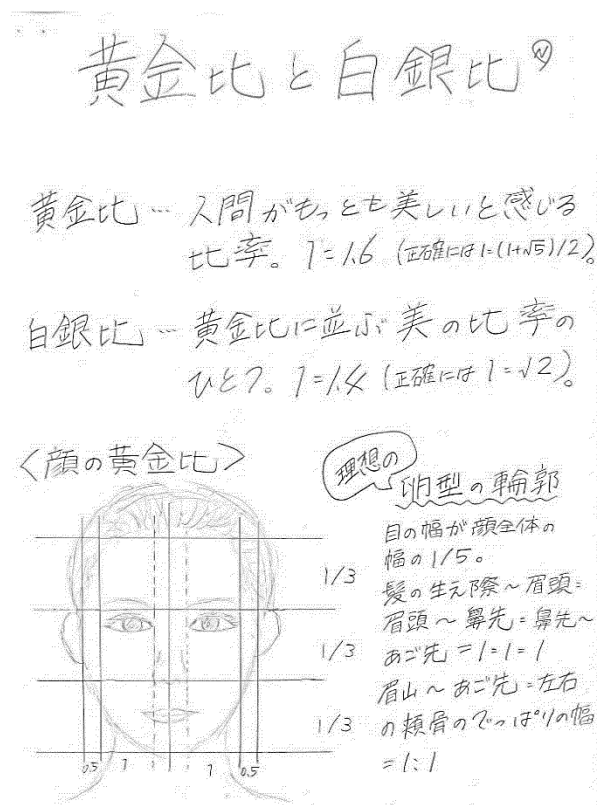 黄金比と白銀比
黄金比…人間がもっとも美しいと感じる
比率。1=1.6 (正確には1=(1+√5)/2)。
白銀比…黄金比に並ぶ美の比率の
ひとつ。1=1.4 (正確には1=√2)。
〈顔の黄金比〉
理想の
卵型の輪郭
目の幅が顔全体の
幅の1/5。
髪の生え際～眉頭=
眉頭～鼻先=鼻先～
あご先=1=1=1
眉山～あご先=左右
の頬骨のでっぱりの幅
=1:1
1/3
1/3
1/3
0.5 1 1 0.5